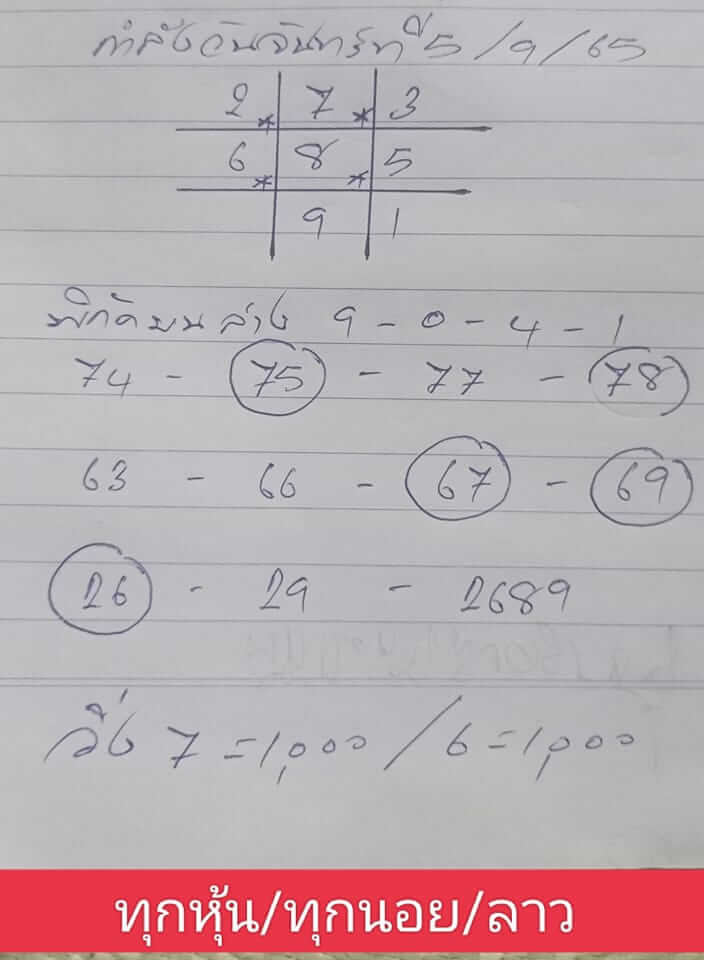 กำลังวันจันทร์ที่ 5/9/65
2 * 7 * 3
6 * 8 * 5
9 1
พิกัดบน ล่าง 9 - 0 - 4 - 1
74 - 75 - 77 - 78
63 - 66 - 67 - 69
26 - 29 - 2689
วิ่ง 7 = 1,000 / 6 = 1,000
ทุกหุ้น/ทุกนอย/ลาว